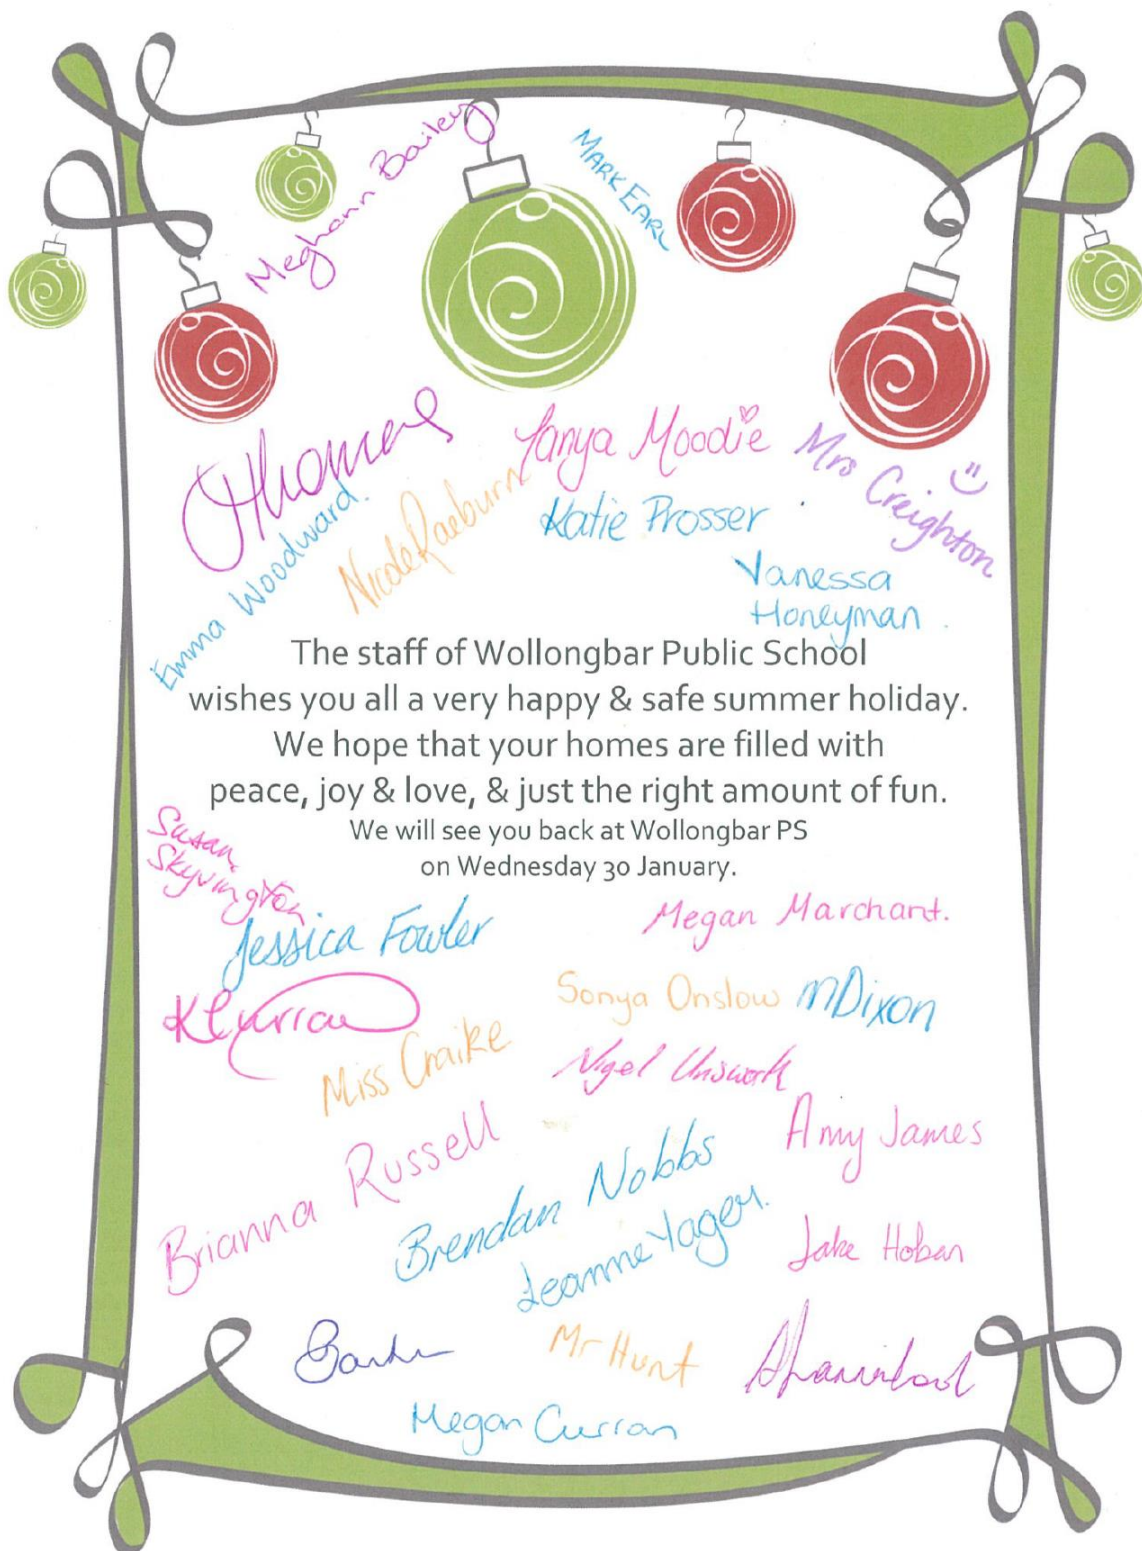 Meghann Bailey
MARK EARL
Thomas
Tanya Moodie
Mrs Creighton
Nicole Raeburn
Katie Prosser
Emma Woodward.
Vanessa
Honeyman.
The staff of Wollongbar Public School
wishes you all a very happy & safe summer holiday.
We hope that your homes are filled with
peace, joy & love, & just the right amount of fun.
We will see you back at Wollongbar PS
on Wednesday 30 January.
Susan
Skyvington
Jessica Fowler
Megan Marchant.
KCurran
Sonya Onslow
MDixon
Miss Craike
Nigel Unsworth
Brianna Russell
Amy James
Brendan Nobbs
Leanne Yager.
Jake Hoban
Mr Hunt
Megan Curran